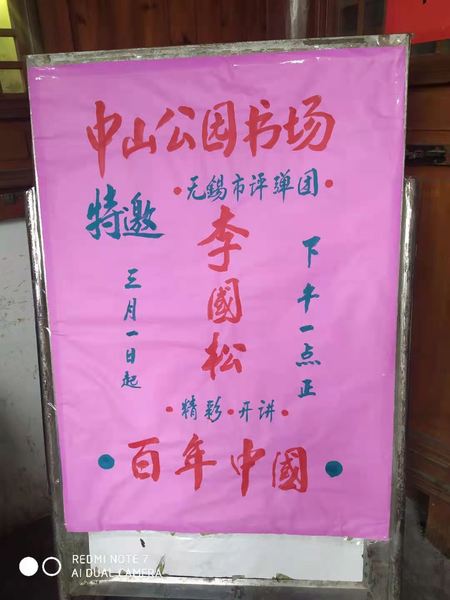 中山公园书场
特邀
·无錫市评弹团·
李國松
三月一日起
下午一点正
·精彩·开讲·
·百年中國·
REDMI NOTE 7
AI DUAL CAMERA